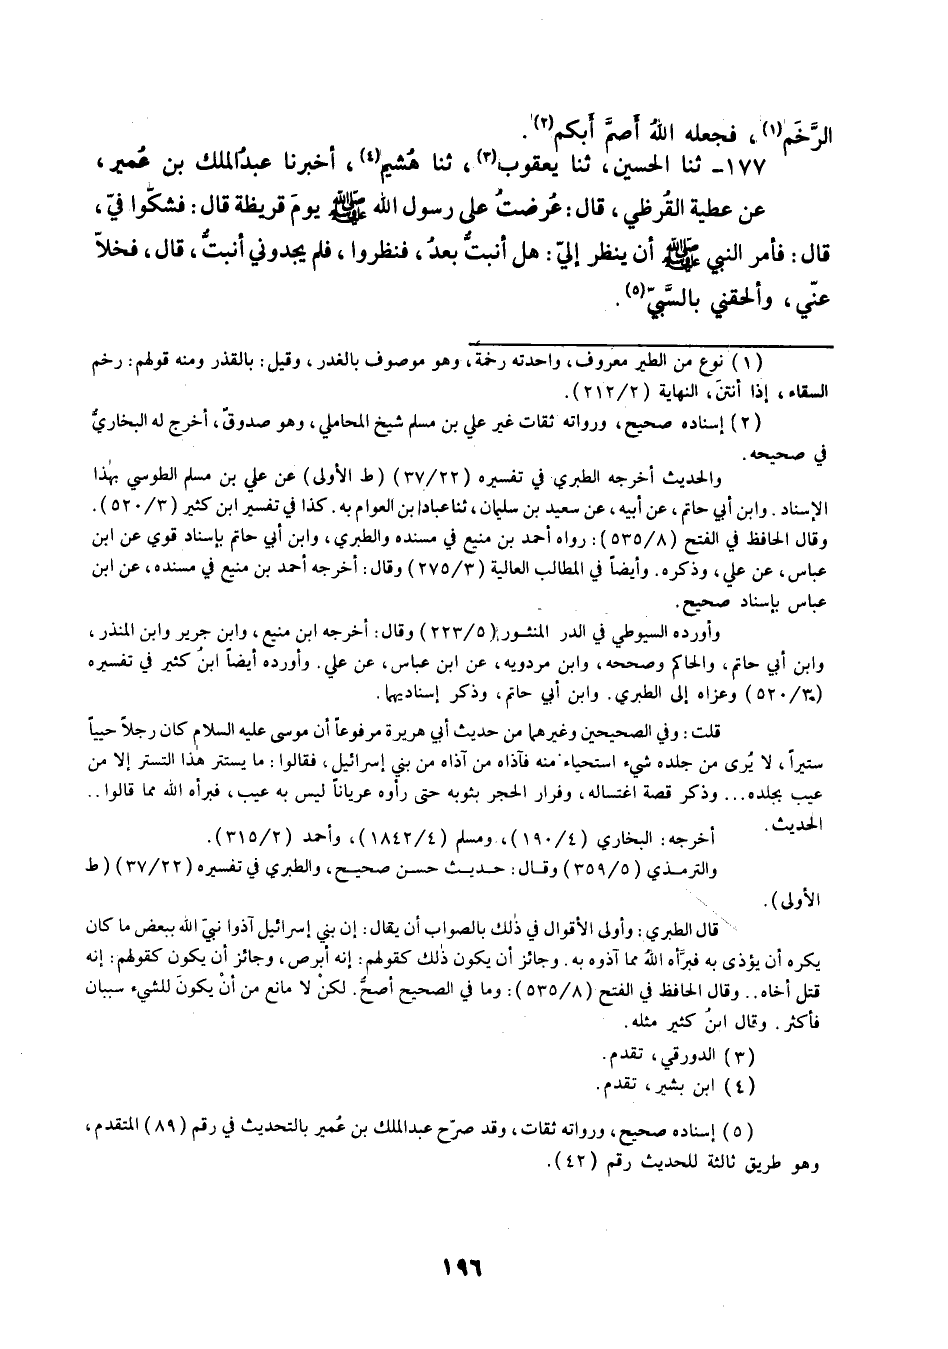 الرَّخَم(١)، فجعله اللهُ أَصمَّ أَبكم(٢).
١٧٧- ثنا الحسين، ثنا يعقوب(٣)، ثنا هُشيم(٤)، أخبرنا عبدُالملك بن عُمير،
عن عطية القُرظي، قال: عُرضتُ على رسول الله ﷺ يومَ قريظة قال: فشكّوا فيّ،
قال: فأمر النبي ﷺ أن ينظر إليّ: هل أنبتُّ بعدُ، فنظروا، فلم يجدوني أنبتُّ، قال، فخلاّ
عنّي، وألحقني بالسَّبيّ(٥).
(١) نوع من الطير معروف، واحدته رخمة، وهو موصوف بالغدر، وقيل: بالقذر ومنه قولهم: رخم
السقاء، إذا أنتنَ، النهاية (٢١٢/٢).
(٢) إسناده صحيح، ورواته ثقات غير علي بن مسلم شيخ المحاملي، وهو صدوقٌ، أخرج له البخاريُّ
في صحيحه.
والحديث أخرجه الطبري في تفسيره (٣٧/٢٢) (ط الأولى) عن علي بن مسلم الطوسي بهٰذا
الإسناد. وابن أبي حاتم، عن أبيه، عن سعيد بن سليمان، ثنا عباد ابن العوام به. كذا في تفسير ابن كثير (٥٢٠/٣).
وقال الحافظ في الفتح (٥٣٥/٨): رواه أحمد بن منيع في مسنده والطبري، وابن أبي حاتم بإسناد قوي عن ابن
عباس، عن علي، وذكره. وأيضاً في المطالب العالية (٢٧٥/٣) وقال: أخرجه أحمد بن منيع في مسنده، عن ابن
عباس بإسناد صحيح.
وأورده السيوطي في الدر المنثور (٢٢٣/٥) وقال: أخرجه ابن منيع، وابن جرير وابن المنذر،
وابن أبي حاتم، والحاكم وصححه، وابن مردويه، عن ابن عباس، عن علي. وأورده أيضاً ابنُ كثير في تفسيره
(٥٢٠/٣) وعزاه إلى الطبري. وابن أبي حاتم، وذكر إسناديهما.
قلت: وفي الصحيحين وغيرهما من حديث أبي هريرة مرفوعاً أن موسى عليه السلام كان رجلاً حيياً
ستيراً، لا يُرى من جلده شيء استحياء منه فآذاه من آذاه من بني إسرائيل، فقالوا: ما يستتر هٰذا التستر إلا من
عيب بجلده... وذكر قصة اغتساله، وفرار الحجر بثوبه حتى رأوه عرياناً ليس به عيب، فبرأه الله مما قالوا..
الحديث.
أخرجه: البخاري (١٩٠/٤)، ومسلم (١٨٤٢/٤)، وأحمد (٣١٥/٢).
والترمذي (٣٥٩/٥) وقال: حديث حسن صحيح، والطبري في تفسيره (٣٧/٢٢) (ط
الأولى).
قال الطبري: وأولى الأقوال في ذٰلك بالصواب أن يقال: إن بني إسرائيل آذوا نبيّ الله ببعض ما كان
يكره أن يؤذى به فبرَّأه اللهُ مما آذوه به. وجائز أن يكون ذٰلك كقولهم: إنه أبرص، وجائز أن يكون كقولهم: إنه
قتل أخاه.. وقال الحافظ في الفتح (٥٣٥/٨): وما في الصحيح أصحُّ. لكنْ لا مانع من أنْ يكونَ للشيء سببان
فأكثر. وقال ابنُ كثير مثله.
(٣) الدورقي، تقدم.
(٤) ابن بشير، تقدم.
(٥) إسناده صحيح، ورواته ثقات، وقد صرّح عبدالملك بن عُمير بالتحديث في رقم (٨٩) المتقدم،
وهو طريق ثالثة للحديث رقم (٤٢).
١٩٦